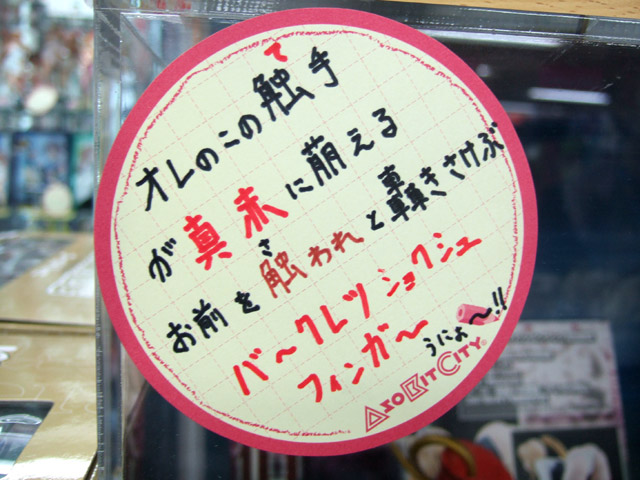 て
オレのこの触手
が真赤に萌える
さ
お前を触われと轟きさけぶ
バ〜クレツショクシュ
フィンガ〜
うにょ〜!!
ASO BIT CITY